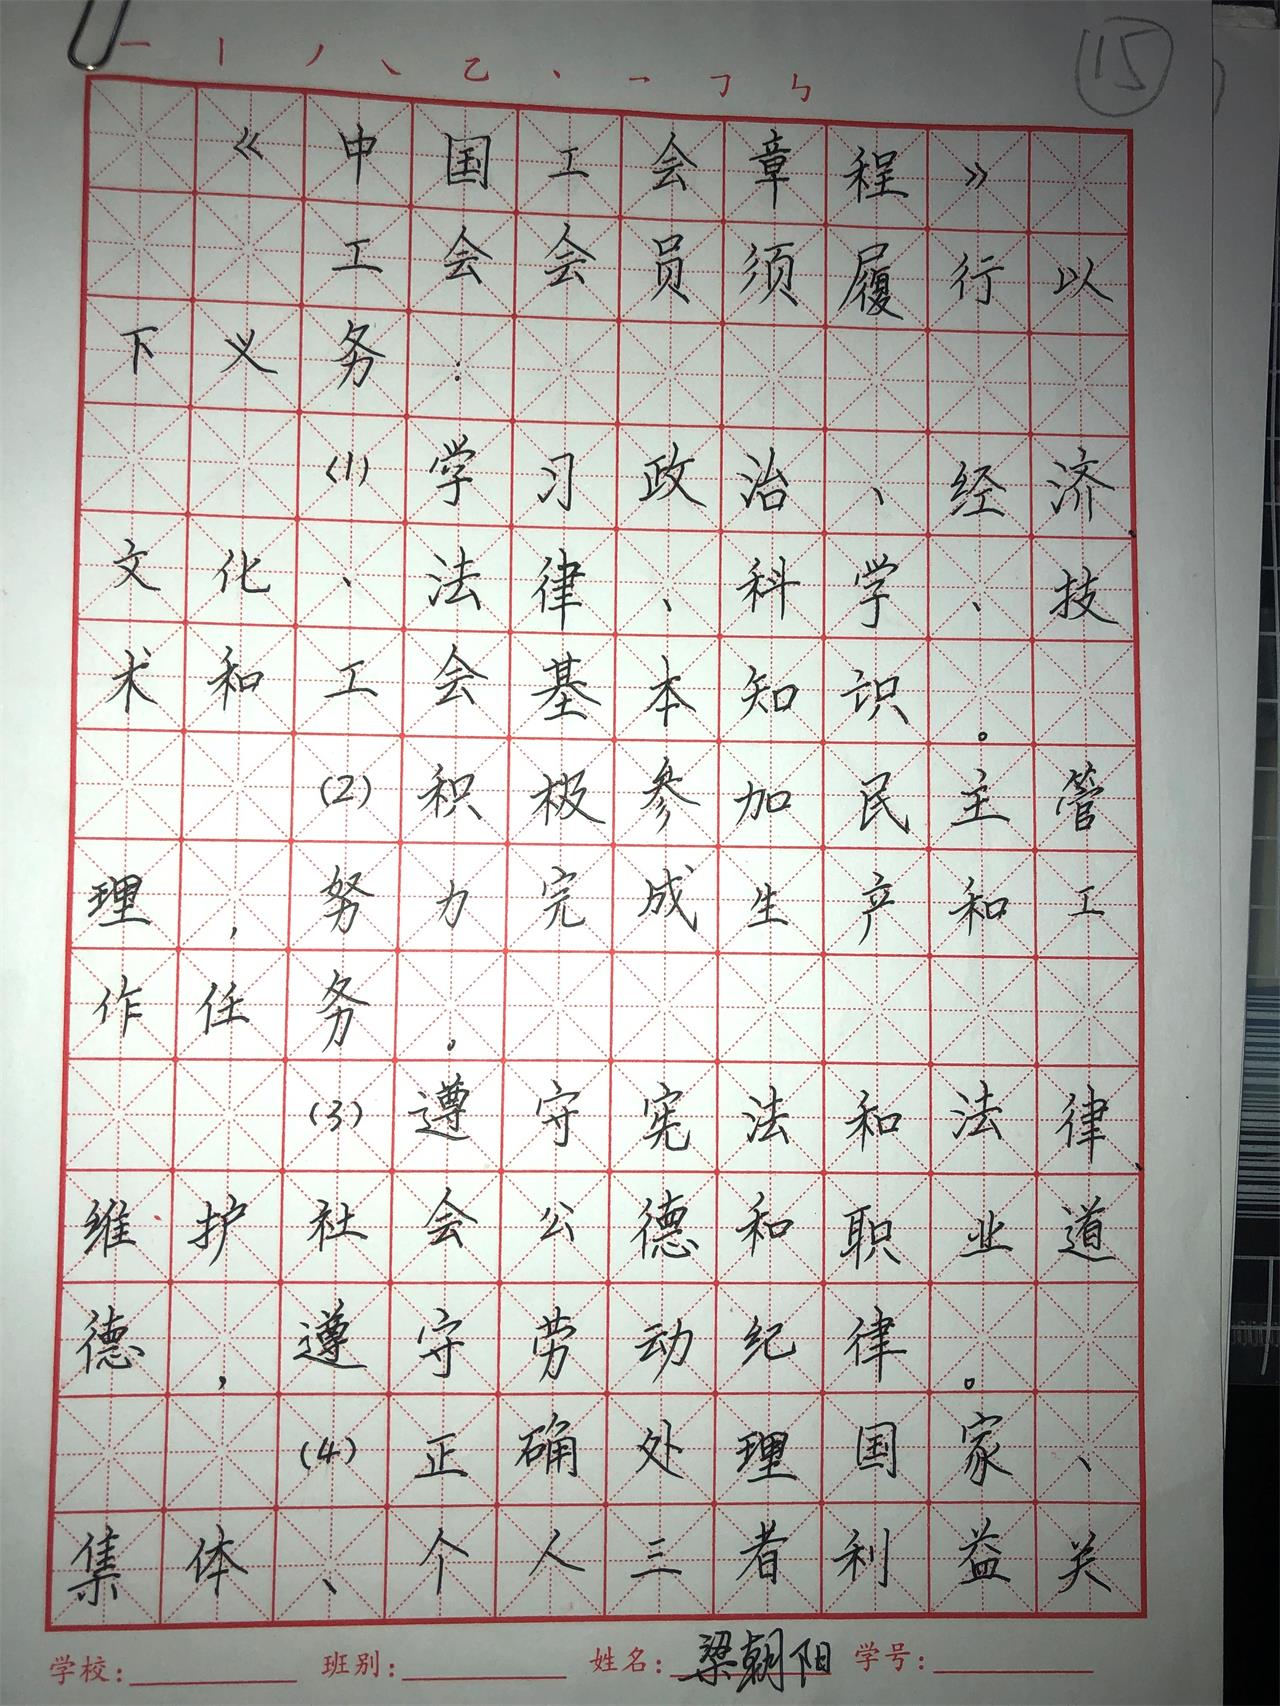 一丨丿㇏乙丶㇀㇆ㄣ
15
《中国工会章程》
工会会员须履行以
下义务:
(1)学习政治、经济、
文化、法律、科学、技
术和工会基本知识。
(2)积极参加民主管
理,努力完成生产和工
作任务。
(3)遵守宪法和法律、
维护社会公德和职业道
德,遵守劳动纪律。
(4)正确处理国家、
集体、个人三者利益关
学校: 班别: 姓名:梁朝阳 学号: